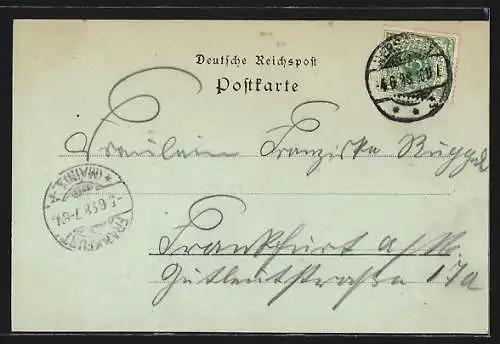 Deutsche Reichspost
Postkarte
Fräulein Franziska
Frankfurt a/M.
Gutleutstraße 17a
FRANKFURT
(MAIN)